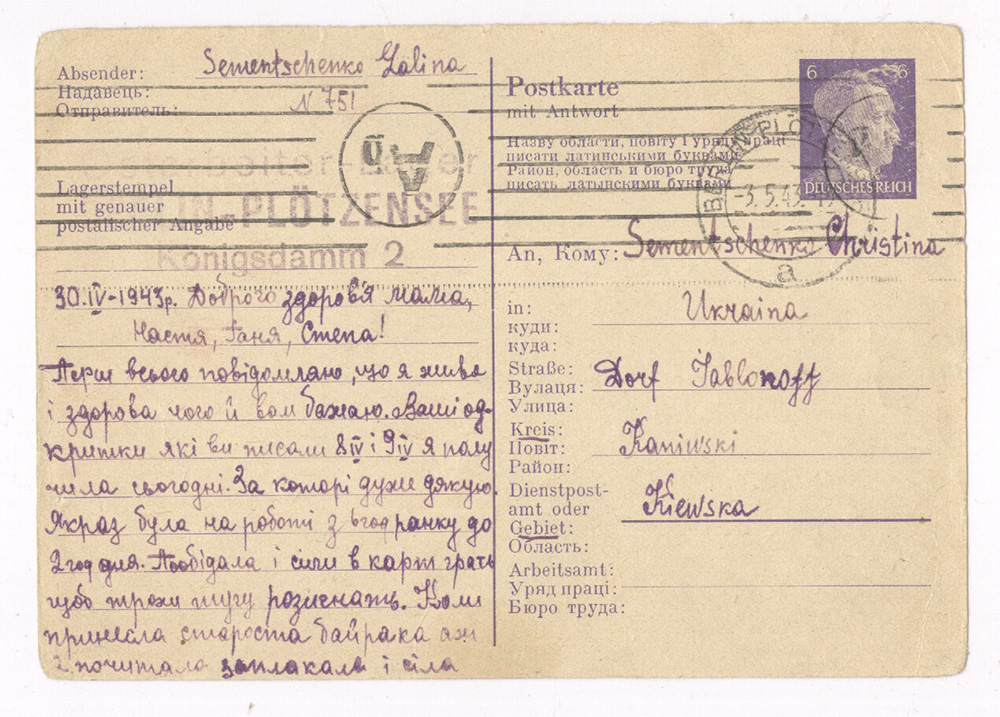 Absender:
Надавець:
Отправитель:
Sementschenko Galina
N 751
Lagerstempel
mit genauer
postalischer Angabe
IN-PLÖTZENSEE
Königsdamm 2
30.IV-1943р. Доброго здоров'я мама,
Настя, Ганя, Степа!
Перш всього повідомляю, що я жива
і здорова чого й вам бажаю. Ваші од-
критки які ви писали 8 IV і 9 IV я полу
чила сьогодні. За котрі дуже дякую.
Якраз була на роботі з 6 год ранку до
2 год дня. Пообідала і сіли в карт грать
щоб трохи тугу розигнать. Коли
принесла староста байрака аж
і почитала заплакала і сіла
Postkarte
mit Antwort
Назву области, повіту і уряду праці
писати латинськими буквами
Район, область и бюро труда
писать латынскими буквами
6 6
DEUTSCHES REICH
BERLIN-PLÖTZENSEE
-3.5.43.
a
A
D
An, Кому: Sementschenko Christina
in:
куди:
куда:
Ukraina
Straße:
Вулиця:
Улица:
Dorf Jablonoff
Kreis:
Повіт:
Район:
Kaniwski
Dienstpost-
amt oder
Gebiet:
Область:
Kiewska
Arbeitsamt:
Уряд праці:
Бюро труда: